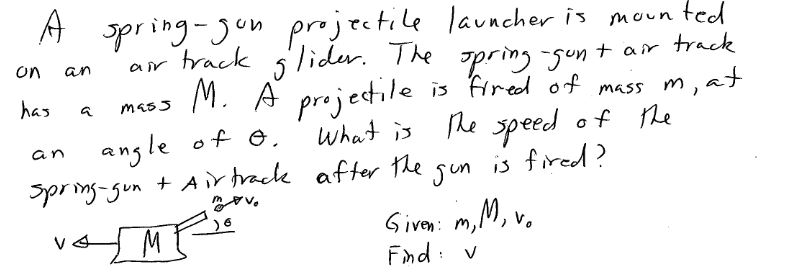 A spring-gun projectile launcher is mounted
on an air track glider. The spring-gun + air track
has a mass M. A projectile is fired of mass m, at
an angle of θ. What is the speed of the
spring-gun + Airtrack after the gun is fired?
m v₀
θ
v M
Given: m, M, v₀
Find: v